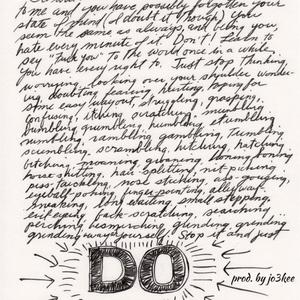 to me and you have possibly forgotten your
state of mind (I doubt it though). You
seem the same as always, and being you,
hate every minute of it. Don't! Learn to
say "Fuck You" to the world once in a while.
You have every right to. Just stop thinking,
worrying, looking over your shoulder, wonder-
ing, doubting, fearing, hurting, hoping for
some easy way out, struggling, grasping,
confusing, itching, scratching, mumbling,
bumbling, grumbling, humbling, stumbling,
numbling, rambling, gambling, tumbling,
scumbling, scrambling, hitching, hatching,
bitching, moaning, groaning, honing, boning,
horse-shitting, hair-splitting, nit-picking,
piss-trickling, nose sticking, ass-gouging,
eyeball-poking, finger-pointing, alleyway-
sneaking, long waiting, small stepping,
evil-eyeing, back-scratching, searching,
perching, besmirching, grinding, grinding,
grinding away at yourself. Stop it and just
DO
prod. by jo3kee